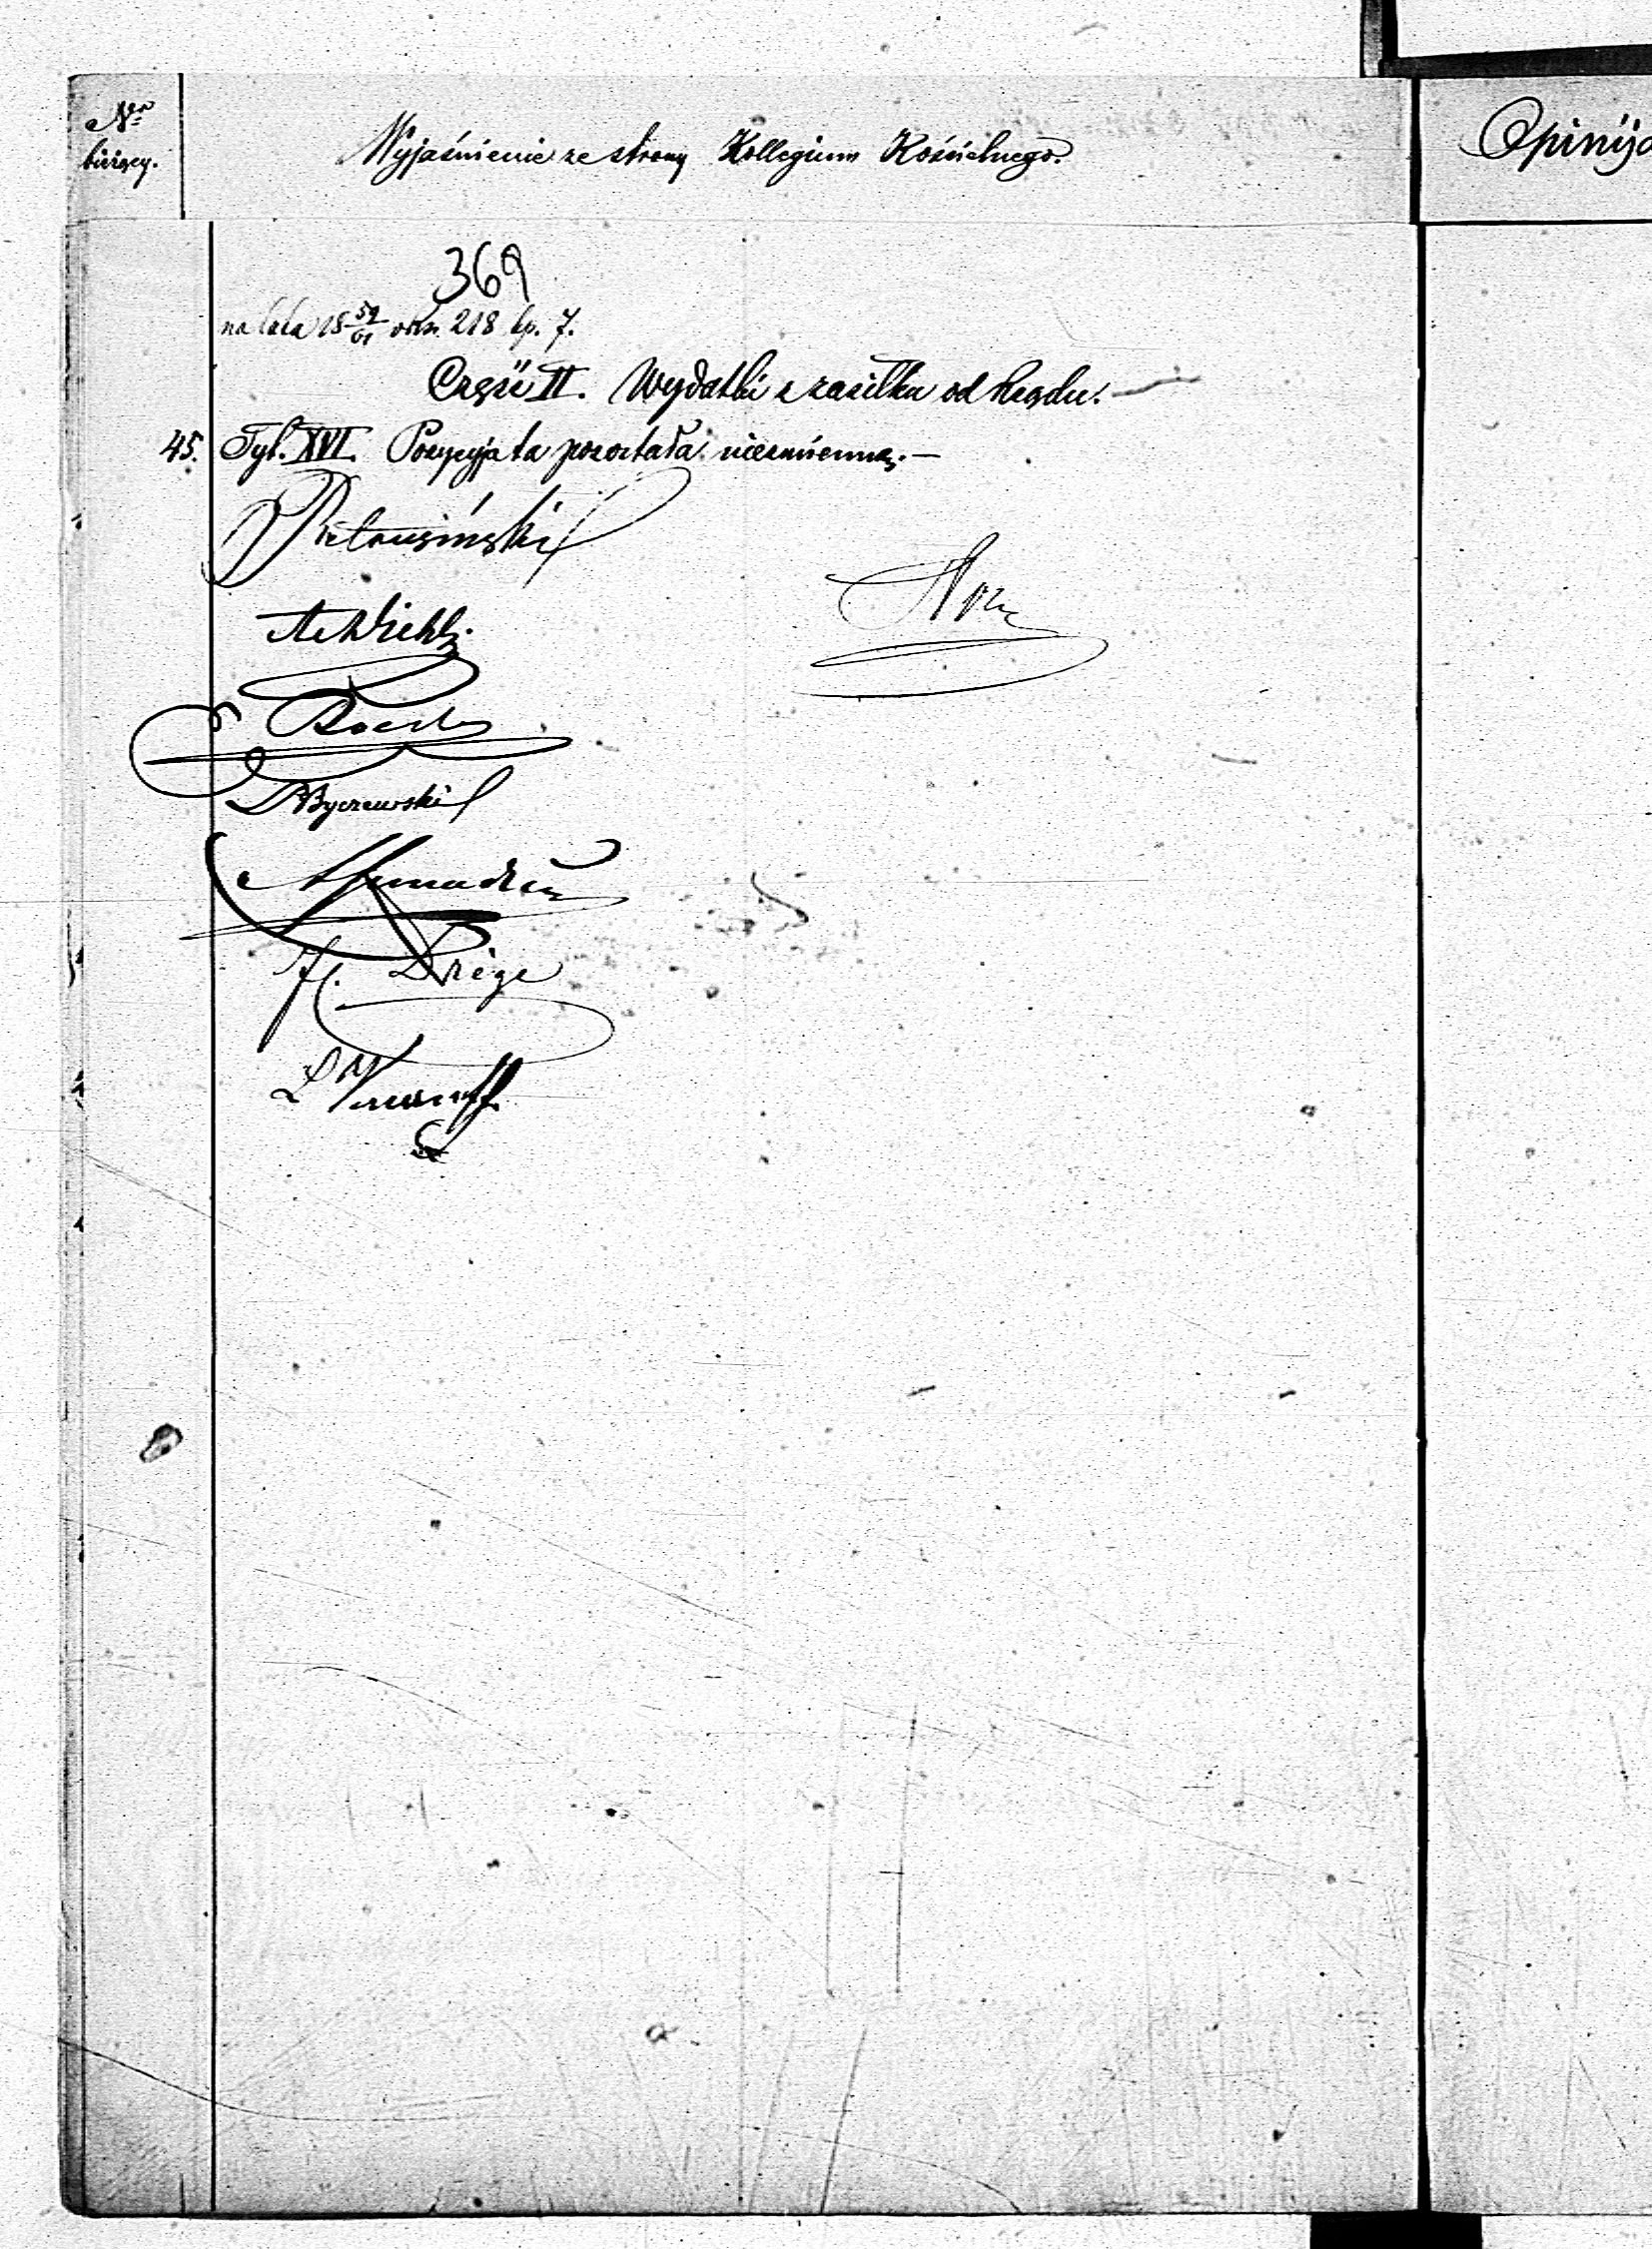 Nr
bieżący.
Wyjaśnienie ze strony Kollegium Kościelnego.
Opinija
369
na lata 18 59/61 218 lp. 7.
Część II. Wydatki z zasiłku od Rządu.—
45. Tyt. XVI. Pozycyja ta pozostała niezmienną.—
Pietrusiński
Byczewski
H. Driège